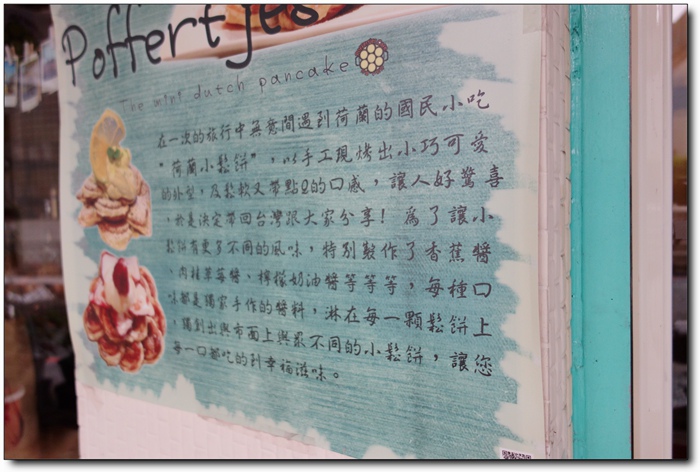 Poffertjes
The mini dutch pancake
在一次的旅行中無意間遇到荷蘭的國民小吃
"荷蘭小鬆餅"，以手工現烤出小巧可愛
的外型，及鬆軟又帶點Q的口感，讓人好驚喜
，於是決定帶回台灣跟大家分享！為了讓小
鬆餅有更多不同的風味，特別製作了香蕉醬
、肉桂草莓醬、檸檬奶油醬等等等，每種口
味都是獨家手作的醬料，淋在每一顆鬆餅上
，獨創出與市面上與眾不同的小鬆餅，讓您
每一口都吃的到幸福滋味。